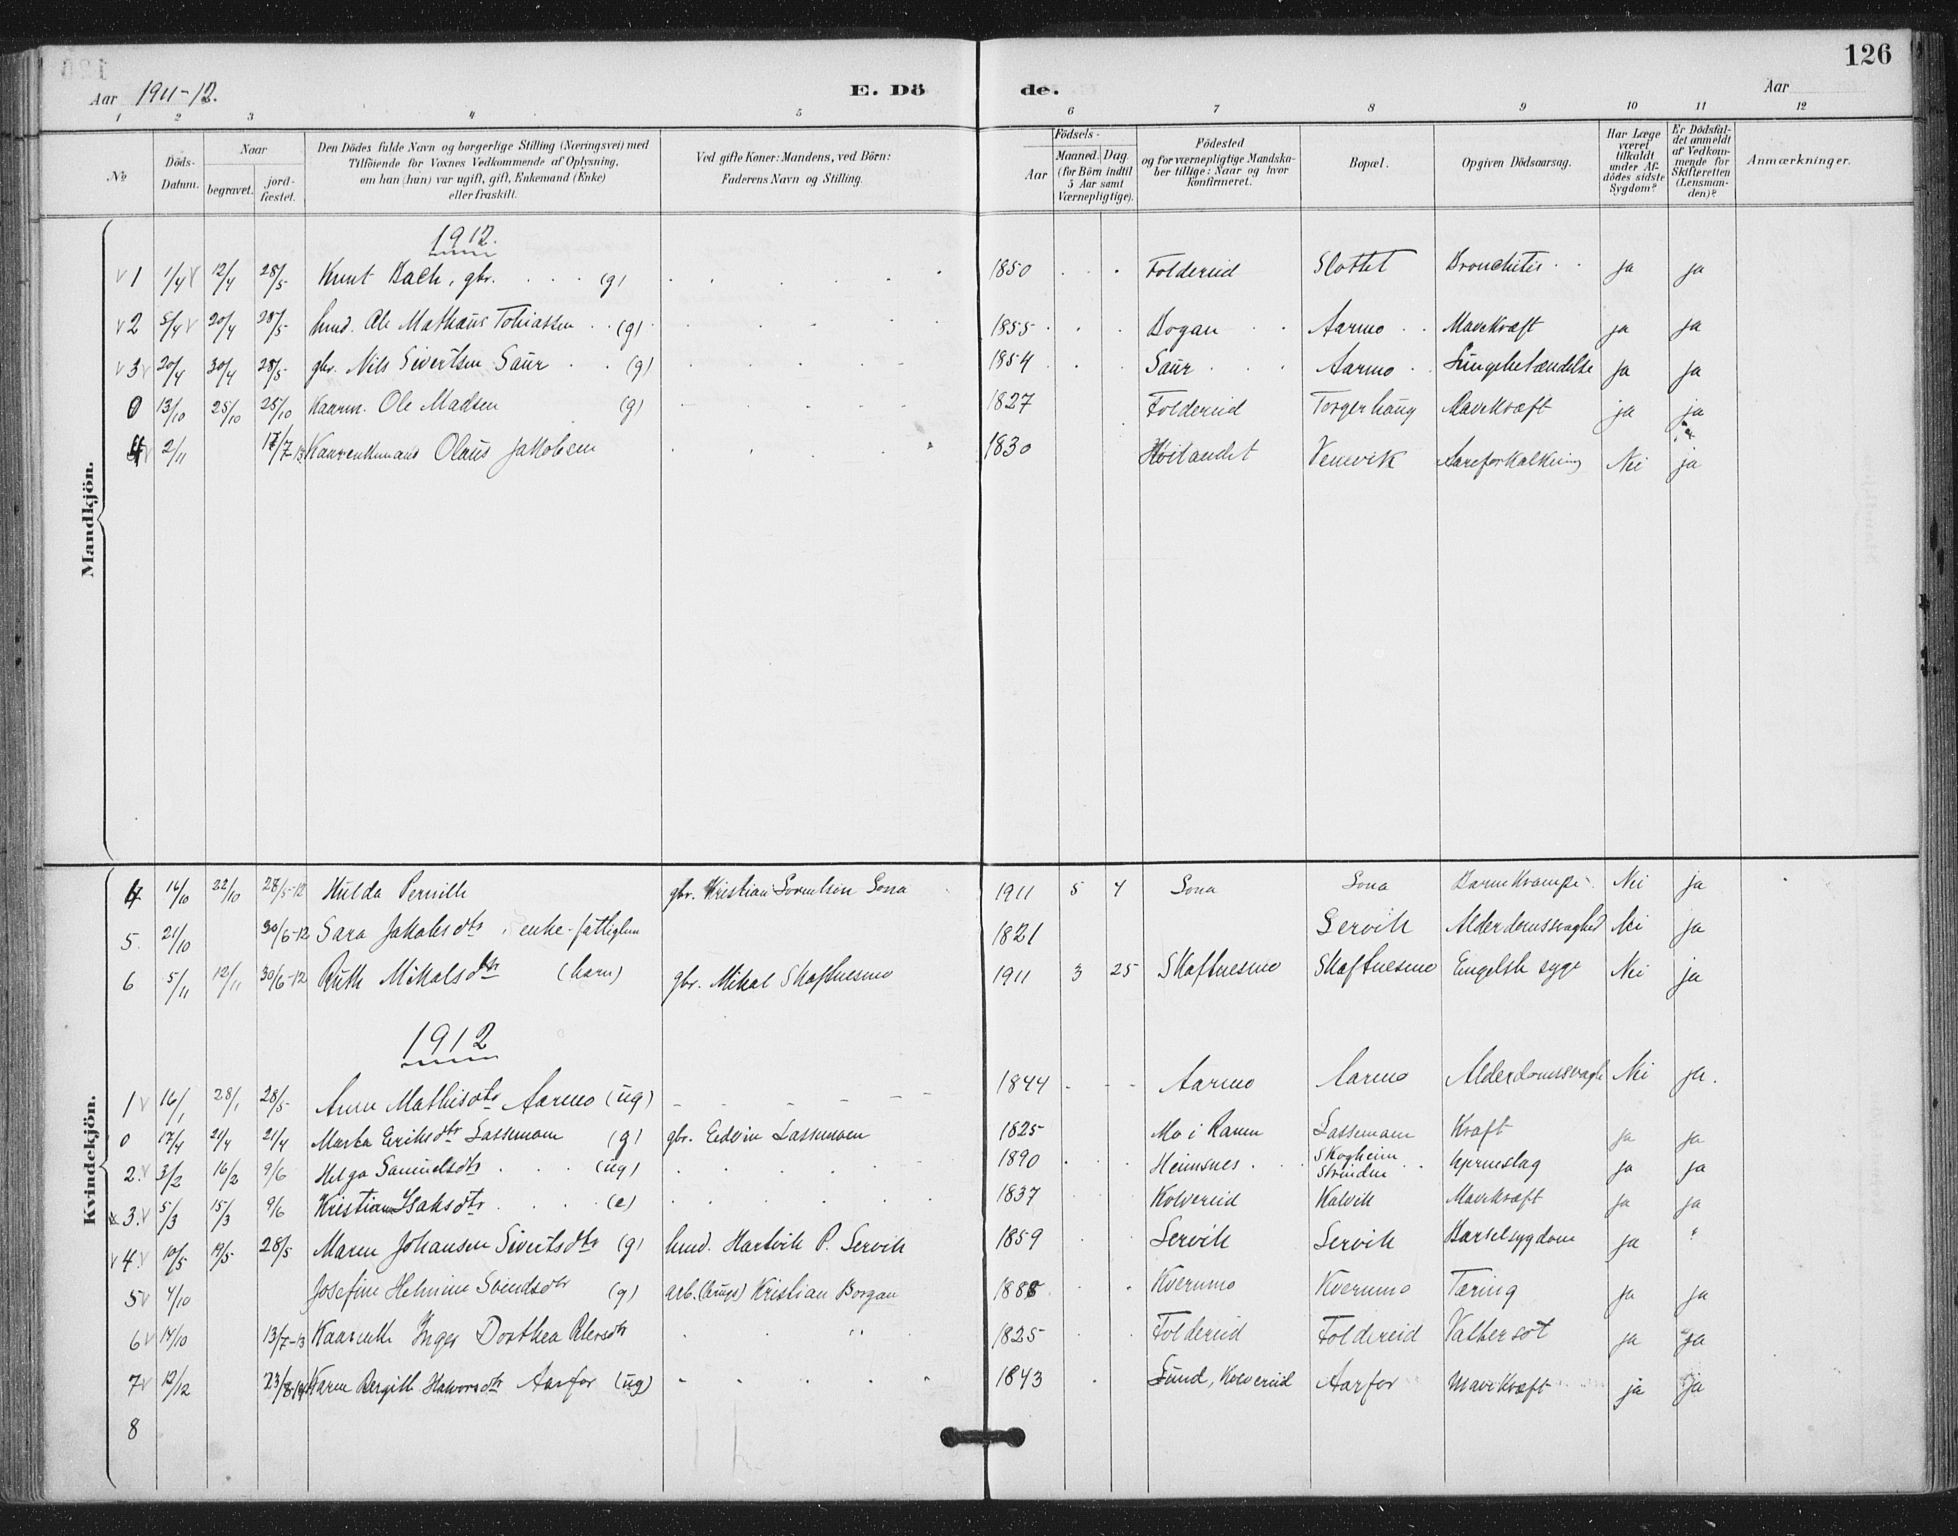 126
Aar 1911-12. E. Dö de. Aar
1 2 3 4 5 6 7 8 9 10 11 12
No Döds-Datum. Naar begravet. jord-fæstet. Den Dödes fulde Navn og borgerlige Stilling (Næringsvei) med Tilföiende for Voxnes Vedkommende af Oplysning, om han (hun) var ugift, gift, Enkemand (Enke) eller fraskilt. Ved gifte Koner: Mandens, ved Börn: Faderens Navn og Stilling. Födsels- Aar Maaned. Dag (for Börn indtil 5 Aar samt Værnepligtige). Födested og for værnepligtige Mandskaber tillige: Naar og hvor Konfirmeret. Bopæl. Opgiven Dödsaarsag. Har Læge været tilkaldt under Afdödes sidste Sygdom? Er Dödsfaldet anmeldt af Vedkommende for Skifteretten (Lensmanden)? Anmærkninger.
Mandkjön.
1912.
1 1/4 12/4 28/5 Knut Bach, gbr. (g) 1850 Foldereid Slottet Bronchitis ja ja
2 5/4 20/4 28/5 husd. Ole Mathæus Tobiassen (g) 1855 Bogan Aarmo Mavekræft ja ja
3 20/4 30/4 28/5 gbr. Nils Sivertsen Saur (g) 1854 Saur Aarmo Lungebetændelse ja ja
0 13/10 25/10 25/10 Kaarm. Ole Madsen (g) 1827 Foldereid Torgerhaug Mavekræft ja ja
4 2/11 17/7-13 Kaarenkemand Olaus Jakobsen 1830 Höilandet Vemvik Aareforkalkning Nei ja
Kvindekjön.
4 16/10 22/10 28/5-12 Hulda Pernille gbr. Kristian Lorentsen Sona 1911 5 4 Sona Sona Barnekrampe Nei ja
5. 21/10 30/6-12 Sara Jakobsdtr, enke-fattiglem 1821 Servik Alderdomssvaghed Nei ja
6 5/11 12/11 30/6-12 Ruth Mikalsdtr (barn) gbr. Mikal Skaftnesmo 1911 3 25 Skaftnesmo Skaftnesmo Engelsk syge Nei ja
1912
1 16/1 28/1 28/5 Anne Mathisdtr Aarmo (ug) 1844 Aarmo Aarmo Alderdomssvagh Nei ja.
0 17/4 21/4 21/4 Marta Eriksdtr Lassemoen (g) gbr. Edvin Lassemoen 1825 Mo i Ranen Lassemoen Kræft ja ja
2. 3/2 16/2 9/6 Helga Samuelsdtr (ug) 1890 Heimsnes Skogheim Strinden hjerneslag ja ja
3. 5/3 15/3 9/6 Kristian Isaksdtr (e) 1837 Kolvereid Kalvik Mavekræft ja ja
4. 10/5 19/5 28/5 Maren Johansen Sivertsdtr (g) husd. Hartvik P. Servik 1859 Servik Servik Barselsygdom ja "
5 4/10 Josefine Helmine Svendsdtr (g) arb. (brugs) Kristian Borgan 1886 Kvernmo Kvernmo Tæring ja ja
6 14/10 13/7-13 Kaarenke Inger Dorthea Petersdtr " 1825 Foldereid Foldereid Vattersot ja ja
7 12/12 23/8-14 Karen Bergitte Halvorsdtr Aarfor (ug) 1843 Lund, Kolvereid Aarfor Mavekræft ja ja
8